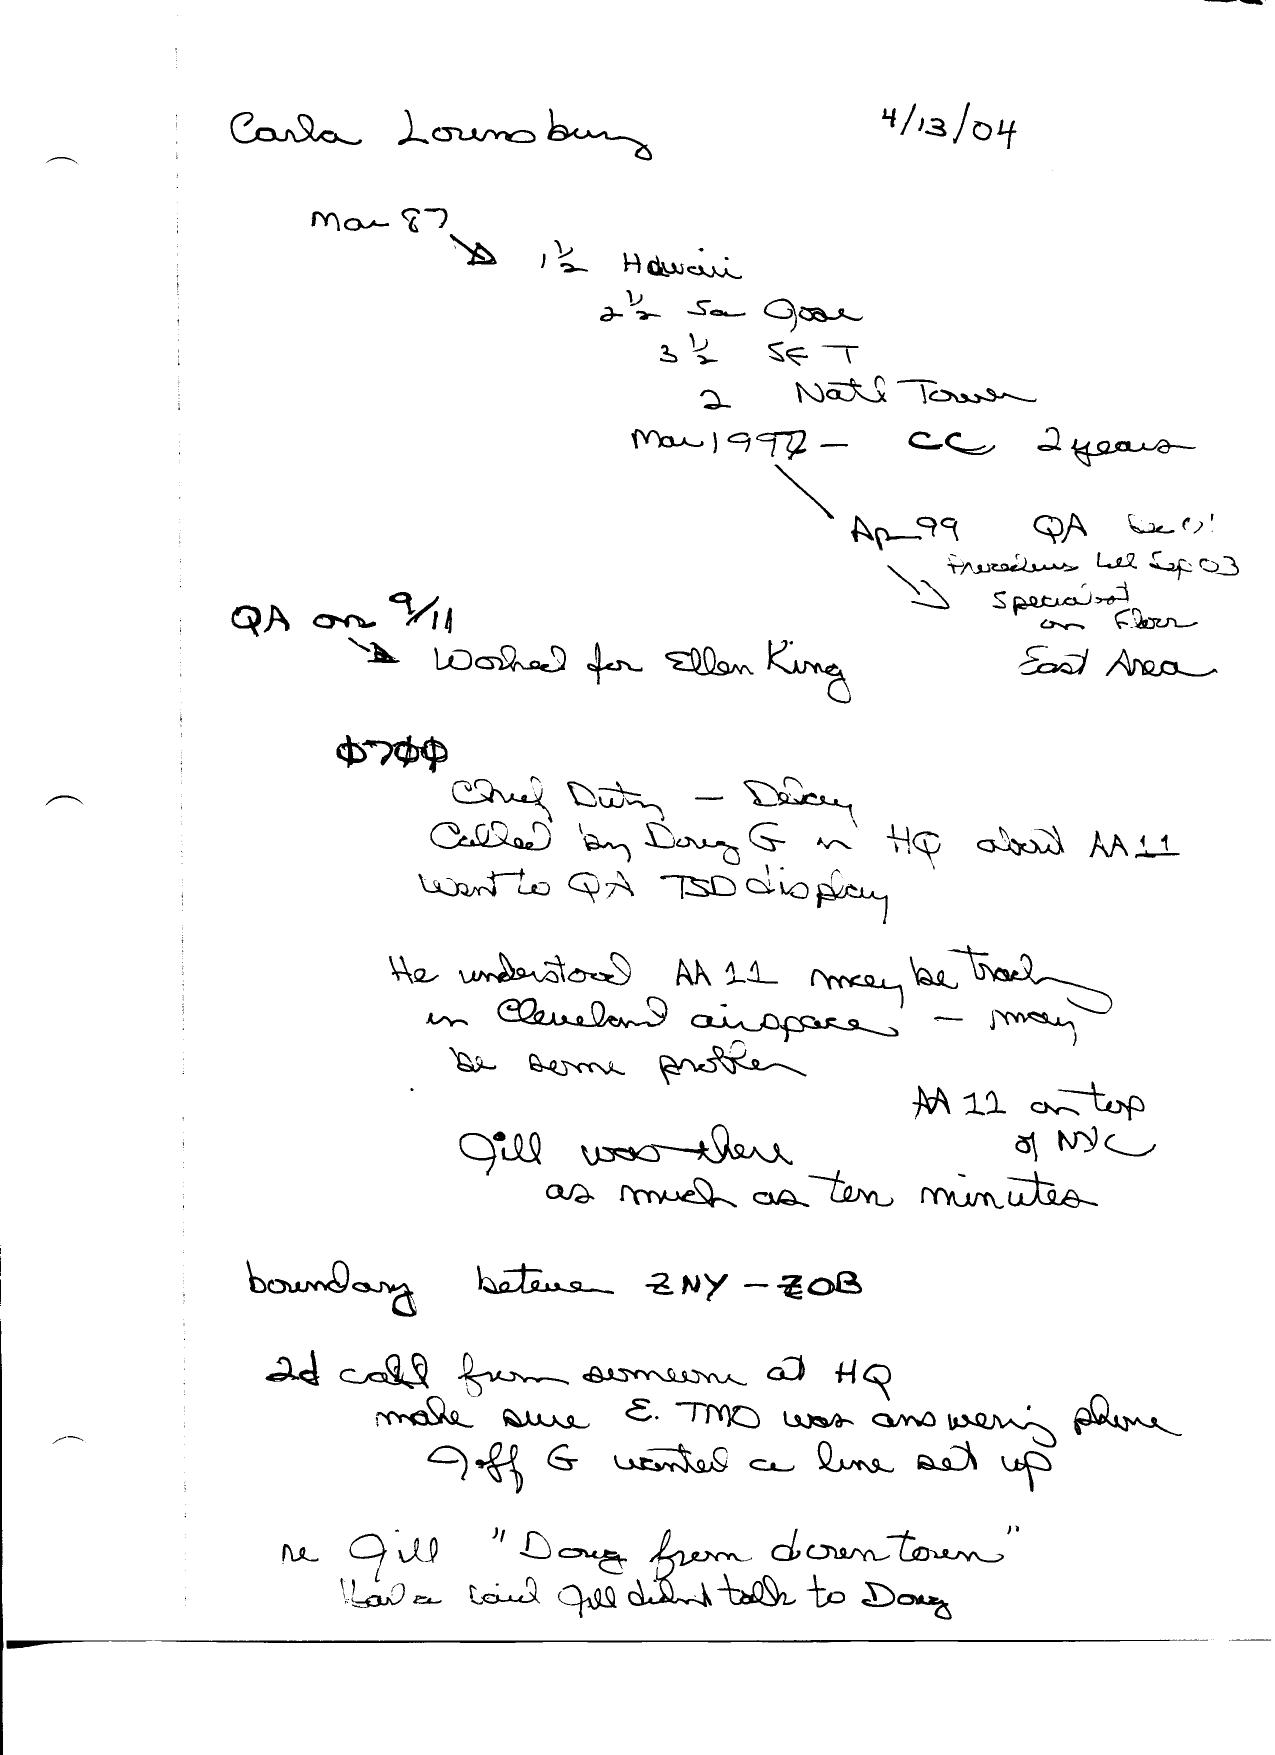 Carla Lounsbury 4/13/04
Mar 87
1 1/2 Hawaii
2 1/2 San Jose
3 1/2 SF T
2 Nat'l Tower
Mar 1997 - CC 2 years
Apr 99 QA
Procedures till Sep 03
Specialist
on Floor
East Area
QA on 9/11
Worked for Ellen King
0700
Chief Duty -
Called by Doug G in HQ about AA 11
went to QA TSD display
He understood AA 11 may be track
in Cleveland airspace - may
be some problem
AA 11 on top
of NYC
Jill was there
as much as ten minutes
boundary between ZNY - ZOB
2d call from someone at HQ
make sure E. TMO was answering phone
Jeff G wanted a line set up
re Jill "Doug from downtown"
said Jill didn't talk to Doug